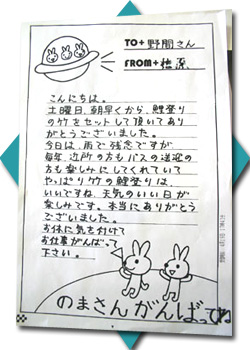 TO+ 野間さん
FROM+ 穂源
こんにちは。
土曜日、朝早くから、鯉登り
の竹をセットして頂いてあり
がとうございました。
今日は、雨で残念ですが
毎年、近所の方もバスの送迎の
方も楽しみにしてくれていて
やっぱり竹の鯉登りは、
いいですね。天気のいい日が
楽しみです。本当にありがとう
ございました。
お体に気を付けて
お仕事がんばって
下さい。
のまさんがんばってね